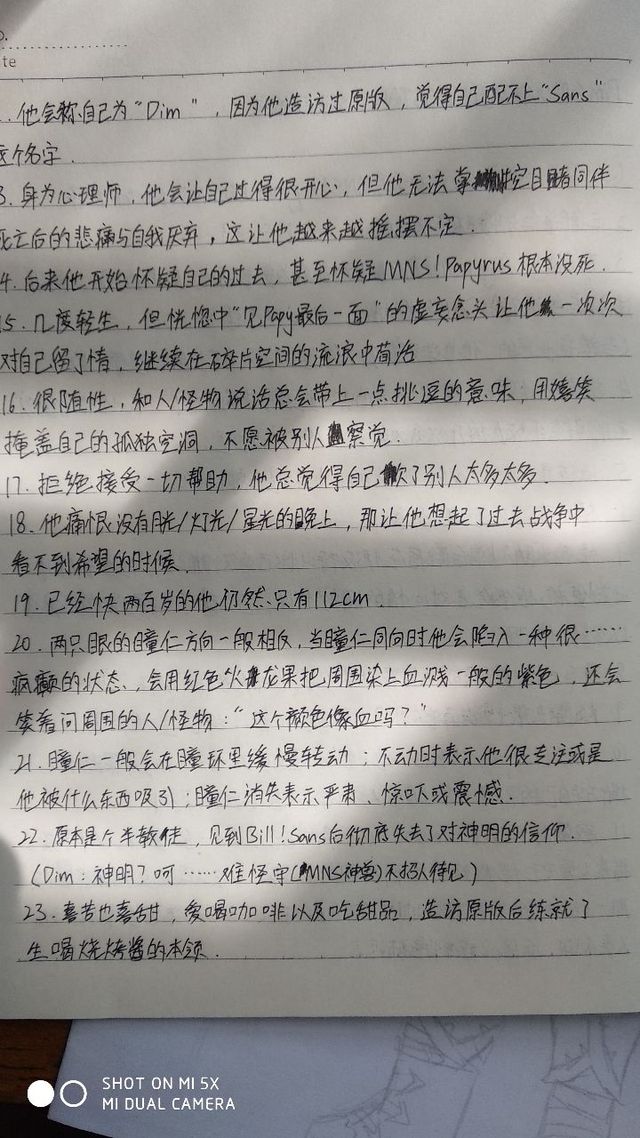 te
.他会称自己为"Dim",因为他造访过原版,觉得自己配不上"Sans"
这个名字.
3.身为心理师,他会让自己过得很开心,但他无法掌控目睹同伴
死亡后的悲痛与自我厌弃,这让他越来越摇摆不定.
4.后来他开始怀疑自己的过去,甚至怀疑MNS!Papyrus根本没死.
15.几度轻生,但恍惚中"见Papy最后一面"的虚妄念头让他一次次
对自己留了情,继续在碎片空间的流浪中苟活
16.很随性,和人/怪物说话总会带上一点挑逗的意味,用嬉笑
掩盖自己的孤独空洞,不愿被别人察觉.
17.拒绝接受一切帮助,他总觉得自己欠了别人太多太多.
18.他痛恨没有月光/灯光/星光的晚上,那让他想起了过去战争中
看不到希望的时候.
19.已经快两百岁的他仍然只有112cm.
20.两只眼的瞳仁方向一般相反,当瞳仁同向时他会陷入一种很……
疯癫的状态,会用红色火龙果把周围染上血溅一般的紫色,还会
笑着问周围的人/怪物:"这个颜色像血吗?"
21.瞳仁一般会在瞳环里缓慢转动;不动时表示他很专注或是
他被什么东西吸引;瞳仁消失表示严肃、惊吓或震憾.
22.原本是个半教徒,见到Bill!Sans后彻底失去了对神明的信仰.
(Dim:神明?呵……难怪守(MNS神兽)不招人待见)
23.喜苦也喜甜,爱喝咖啡以及吃甜品,造访原版后练就了
生喝烧烤酱的本领.
SHOT ON MI 5X
MI DUAL CAMERA